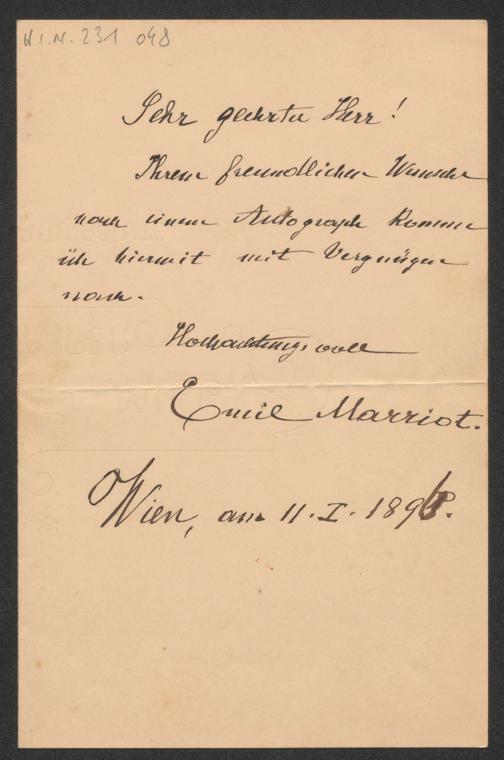 H.I.N. 231 048
Sehr geehrter Herr!
Ihrem freundlichen Wunsche
nach einem Autograph komme
ich hiermit mit Vergnügen
nach.
Hochachtungsvoll
Emil Marriot.
Wien, am 11. I. 1896.